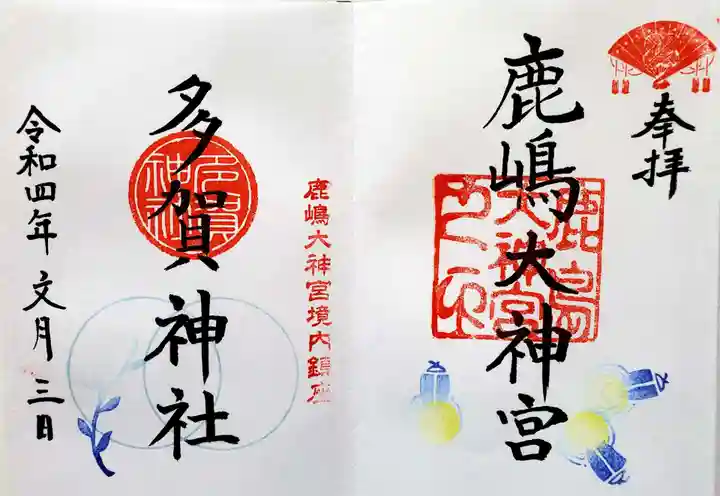 奉拝
鹿嶋大神宮
鹿島大神宮之印
鹿嶋大神宮境内鎮座
多賀神社
多賀神社
令和四年 文月 三日